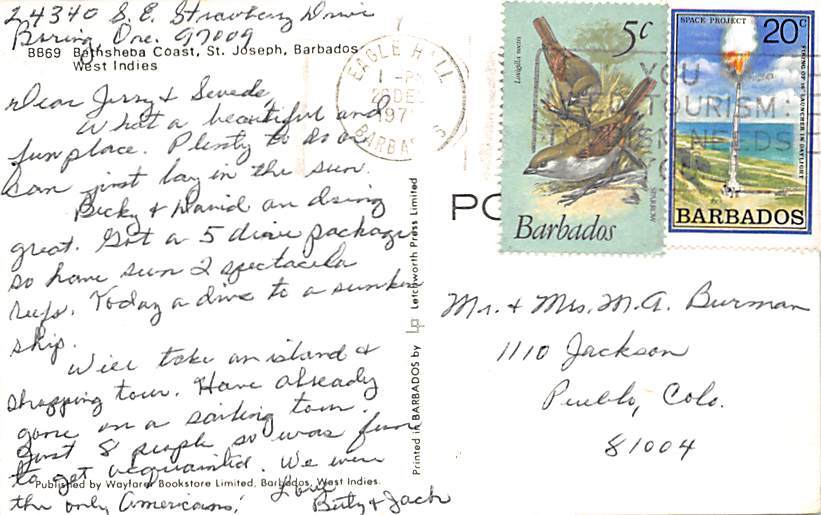 24340 S.E. Strawberry Drive
Boring Ore. 97009
BB69 Bathsheba Coast, St. Joseph, Barbados
West Indies
Dear Jerry &
What a beautiful and
fun place. Plenty to do or
can just lay in the sun.
Becky & David an doing
great. Got a 5 dive package
so have seen 2 spectacular
reefs. Today a dive to a sunken
ship.
Will take an island &
shopping tour. Have already
gone on a sailing tour.
Just 8 people so was fun
to get acquainted. We were
the only Americans!
Love
Betty & Jack
Published by Wayfarer Bookstore Limited, Barbados, West Indies.
Printed in BARBADOS by Lp Letchworth Press Limited
EAGLE HALL
1 - P
28 DEC
197
BARBADOS
YOU
TOURISM
NEEDS
YOU
PO
5c
Loxigilla noctis
SPARROW
Barbados
SPACE PROJECT
20c
FIRING OF 16" LAUNCHER IN DAYLIGHT
BARBADOS
Mr. & Mrs. M.A. Burman
1110 Jackson
Pueblo, Colo.
81004